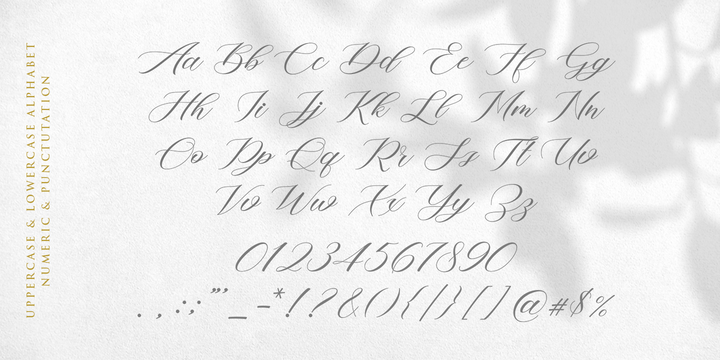 UPPERCASE & LOWERCASE ALPHABET
NUMERIC & PUNCTUTATION
Aa Bb Cc Dd Ee Ff Gg
Hh Ii Jj Kk Ll Mm Nn
Oo Pp Qq Rr Ss Tt Uu
Vv Ww Xx Yy Zz
01234567890
. , : ; ” ’ _ - * ! ? & ( ) { | } [ ] @ # $ %